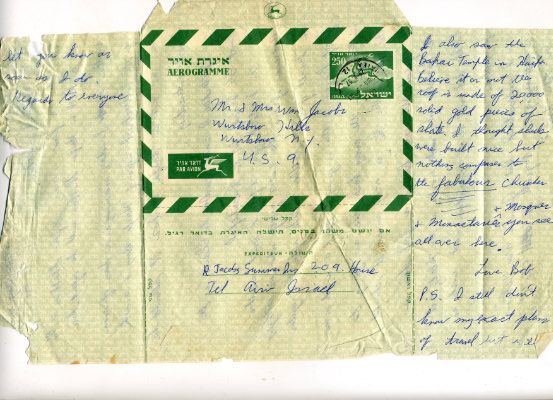 let you know as
soon as I do
Regards to everyone
אגרת אויר
AEROGRAMME
דואר אויר
250
ישראל
Mr & Mrs Wm Jacobs
Wurtsboro Hills
Wurtsboro N.Y.
U.S.A.
דואר אויר
PAR AVION
קפל שלישי
אם יושם משהו בפנים, תישלח האיגרת בדואר רגיל.
EXPEDITEUR - השולח
R Jacobs Summer 209 House
Tel Aviv Israel
I also saw the
Bahai Temple in Haifa
believe it or not the
roof is made of 20000
solid gold pieces of
slate. I thought
were built nice but
nothing compares to
the fabulous Churches
& Mosques
& Monasteries you see
all over here.
Love Bob
P.S. I still don't
know my exact plans
of travel but will